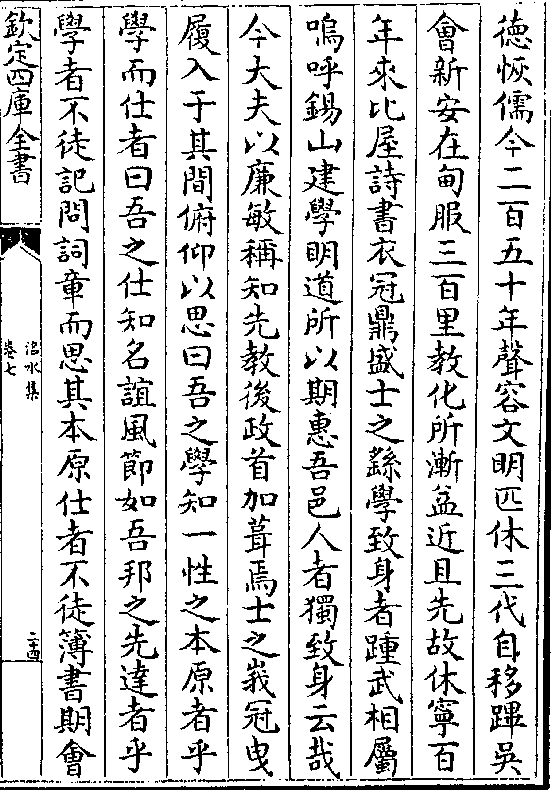 德恢儒今二百五十年聲容文明匹休三代自移蹕吳
會新安在甸服三百里教化所漸益近且先故休寧百
年來比屋詩書衣冠鼎盛士之繇學致身者踵武相屬
嗚呼錫山建學明道所以期惠吾邑人者獨致身云哉
今大夫以廉敏稱知先教後政首加葺焉士之峩冠曳
履入于其間俯仰以思曰吾之學知一性之本原者乎
學而仕者曰吾之仕知名誼風節如吾邦之先達者乎
學者不徒記問詞章而思其本原仕者不徒簿書期會
欽定四庫全書
洺水集
卷七
二十四